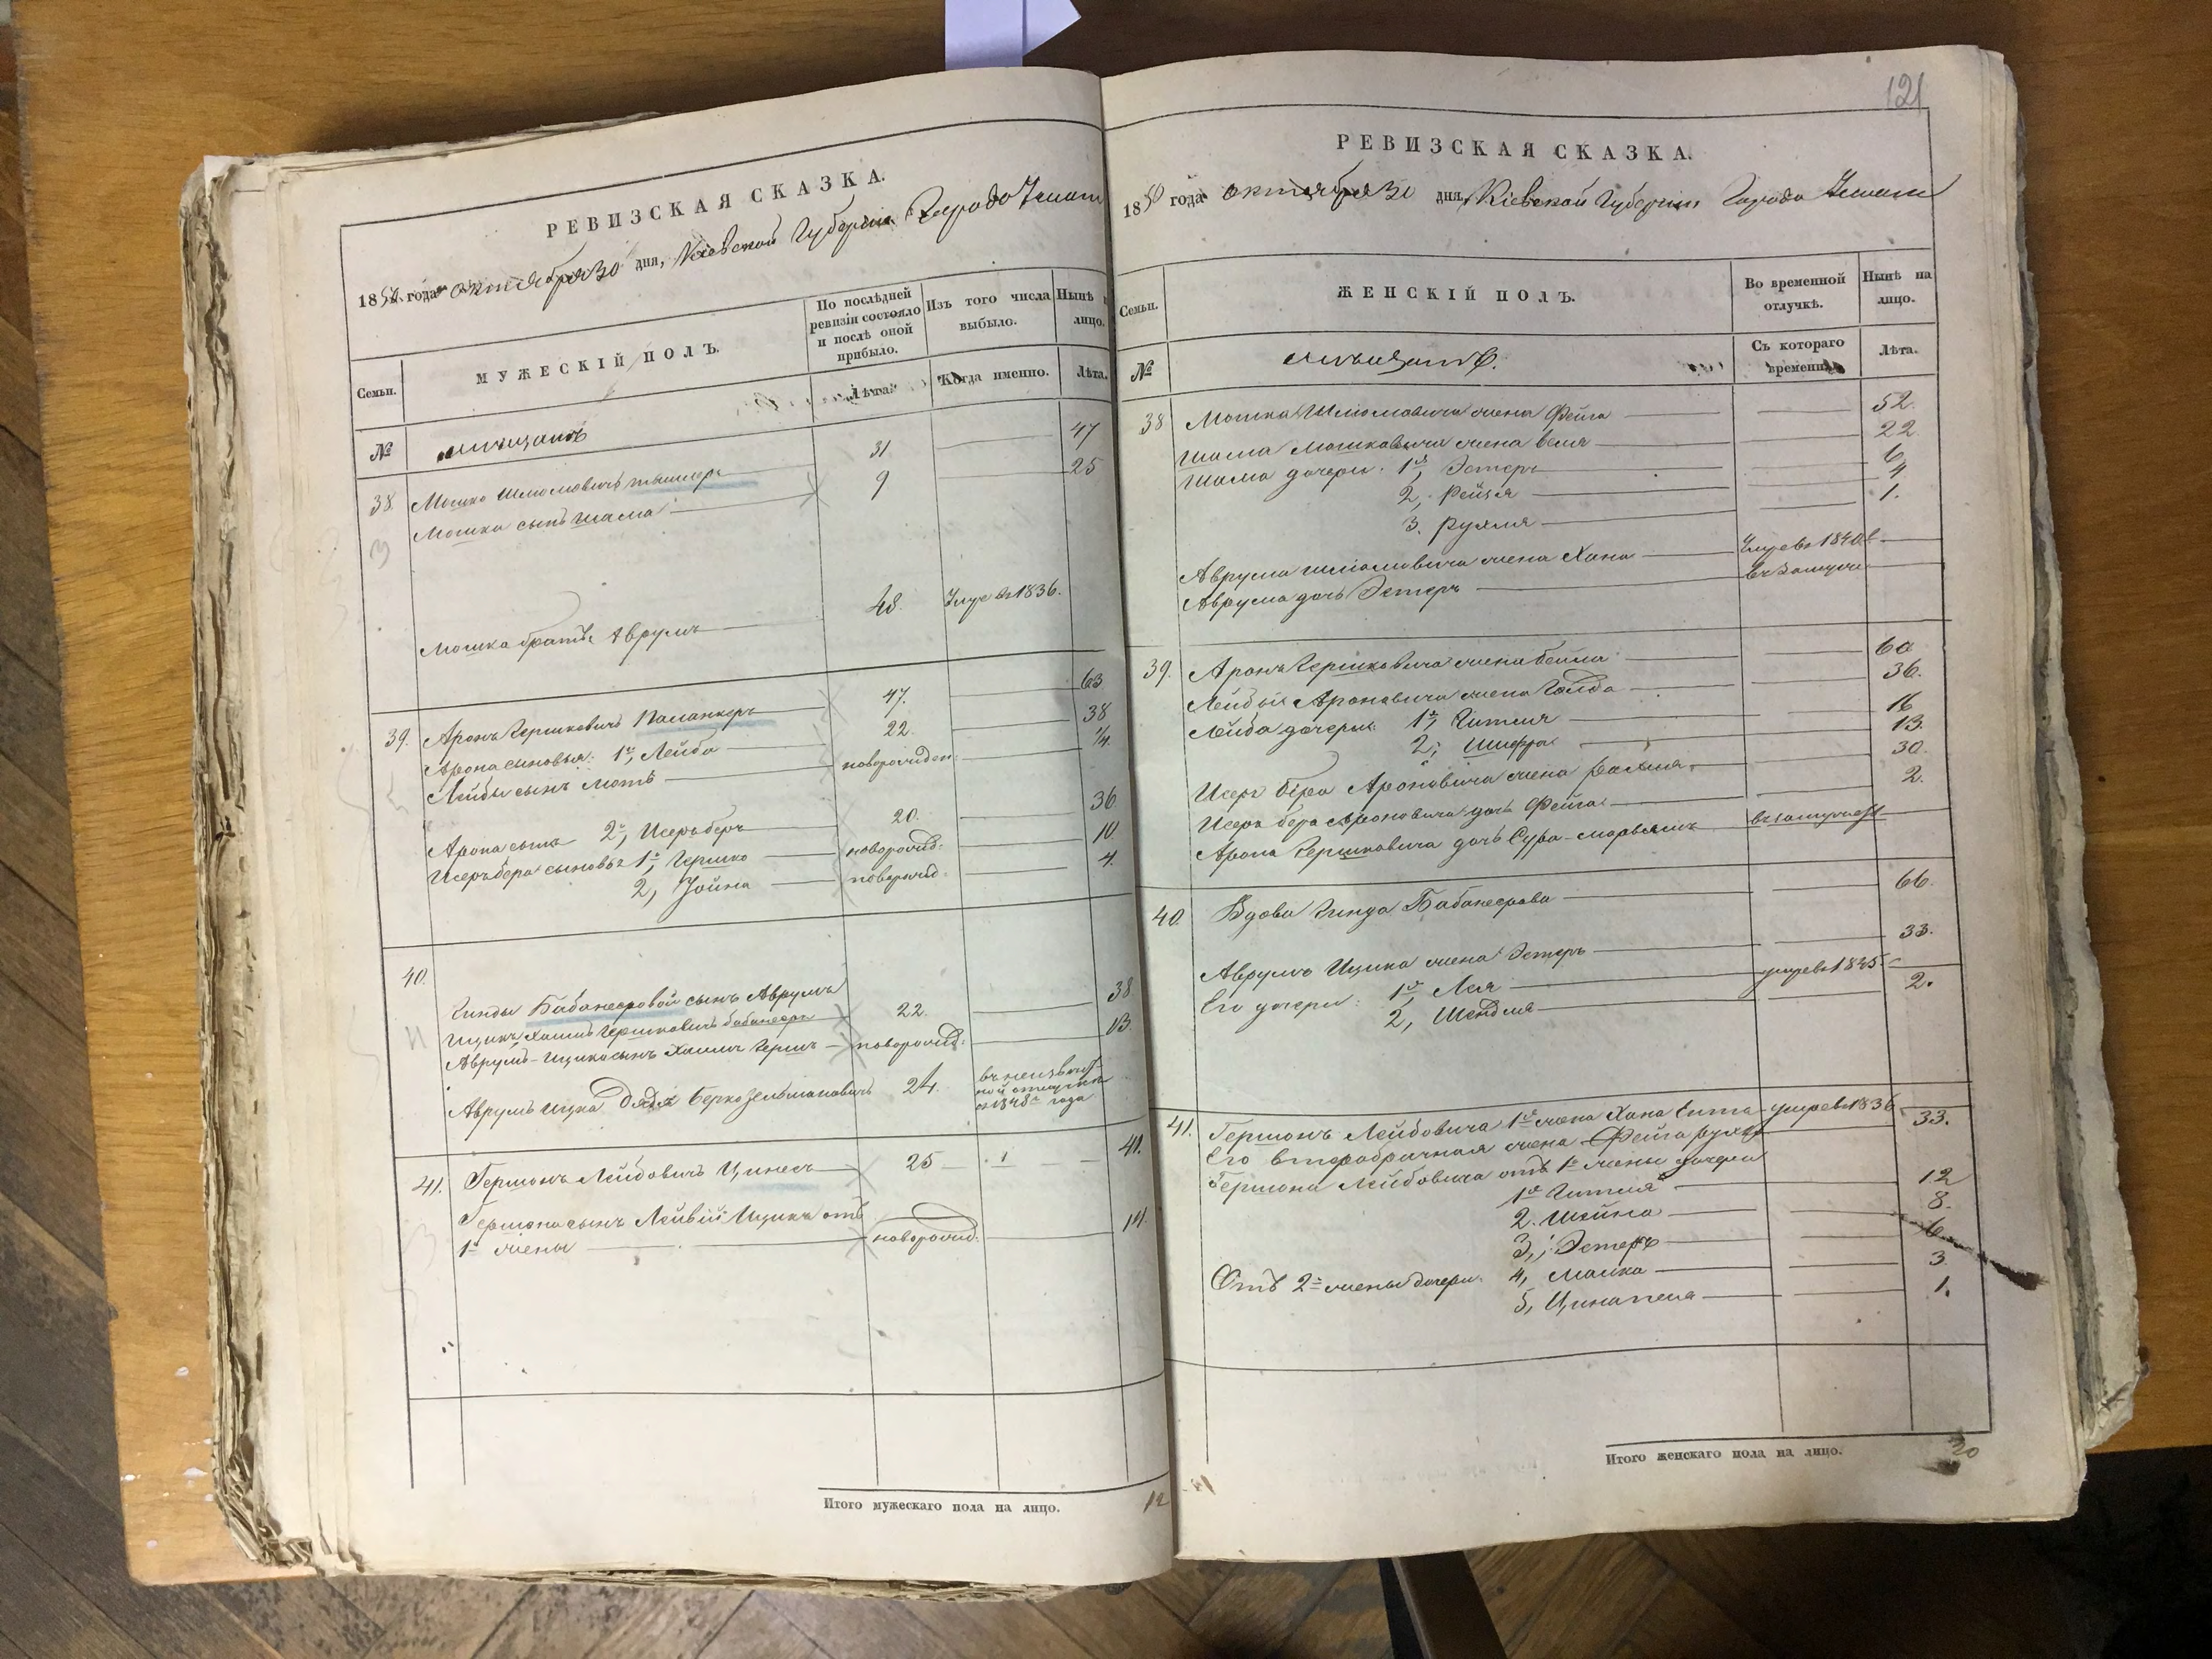 РЕВИЗСКАЯ СКАЗКА.
1850 года октября 30 дня, Кіевской Губерніи Города Умани
Семьи.
МУЖЕСКІЙ ПОЛЪ.
По послѣдней ревизіи состояло и послѣ оной прибыло.
Изъ того числа выбыло.
Нынѣ на лицо.
№
мѣщанъ
Лѣта.
Когда именно.
Лѣта.
38. Мошко Шлiомовичъ 31 47
Мошка сынъ Шама 9 25
Мошка братъ Аврумъ 48. Умре въ 1836.
39. Аронъ Гершковичъ 47. 63
Арона сыновья: 1й, Лейба 22. 38
Лейбы сынъ Мотъ новорожден. 1/4.
Арона сынъ 2й, Исеръ беръ 20. 36
Исеръ бера сыновья 1й, Гершко новорожд: 10.
2, Іойна новорожд: 4.
40. Гинды Бабанеровой сынъ Аврумъ
Ицикъ Хаимъ Гершковичъ 22. 38
Аврумъ-Ицика сынъ Хаимъ Гершъ новорожд: 13.
Аврумъ Ицка дядя Берко Зельмановичъ 24. въ неизвѣст-
ной отлучкѣ
съ 1848го года
41. Гершонъ Лейбовичъ Цинесъ 25 1 41.
Гершона сынъ Лейвій Ицикъ отъ
1й жены новорожд: 14.
Итого мужескаго пола на лицо. 12
121
РЕВИЗСКАЯ СКАЗКА.
1850 года октября 30 дня, Кіевской Губерніи Города Умани
Семьи.
ЖЕНСКІЙ ПОЛЪ.
Во временной отлучкѣ.
Нынѣ на лицо.
№
мѣщанъ.
Съ котораго времени.
Лѣта.
38 Мошка Шлiомовича жена Фейга 52.
Шама Мошковича жена Бейля 22
Шама дочери: 1я, Эстеръ 6
2, Рейзя 4
3. Рухля 1.
Аврума Шлiомовича жена Хана Умре въ 1840 г.
Аврума дочь Эстеръ въ замуже
39. Аронъ Гершковича жена Бейла 60
Лейбы Ароновича жена Голда 36.
Лейба дочери: 1я, Гитля 16
2; Шифра 13.
Исеръ Бера Ароновича жена Рахля 30.
Исеръ Бера Ароновича дочь Фейга 2.
Арона Гершковича дочь Сура-Марьямъ въ замужест
40. Вдова Гинда Бабанерова 66.
Аврумъ Ицика жена Эстеръ 33.
Его дочери: 1я, Лея умре въ 1845
2, Шейндля 2.
41. Гершонъ Лейбовича 1я жена Хана Ента умре въ 1836
Его второбрачная жена Фейга Рухля 33.
Гершона Лейбовича отъ 1й жены дочери
1я Гитля 12
2. Шейна 8.
3, Эстеръ 6
Отъ 2й жены дочери. 4, Малка 3
5, Цинапеса 1.
Итого женскаго пола на лицо. 20